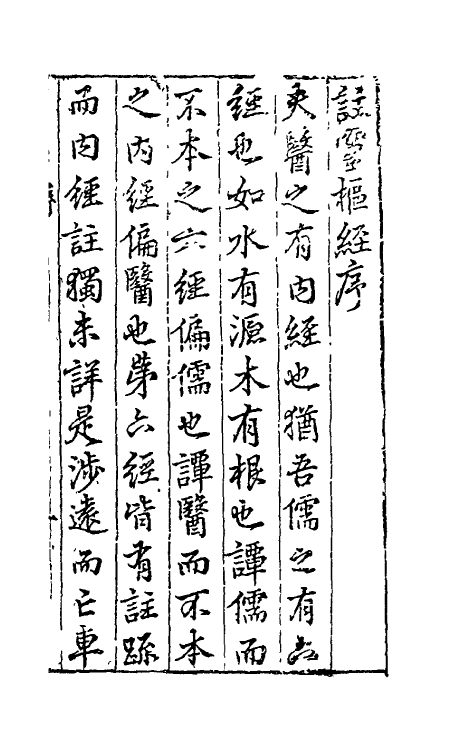 註靈樞經序
夫醫之有内經也猶吾儒之有六
經也如水有源木有根也譚儒而
不本之六經偏儒也譚醫而不本
之内經偏醫也苐六經皆有註䟽
而内經註獨未詳是渉遠而亡車